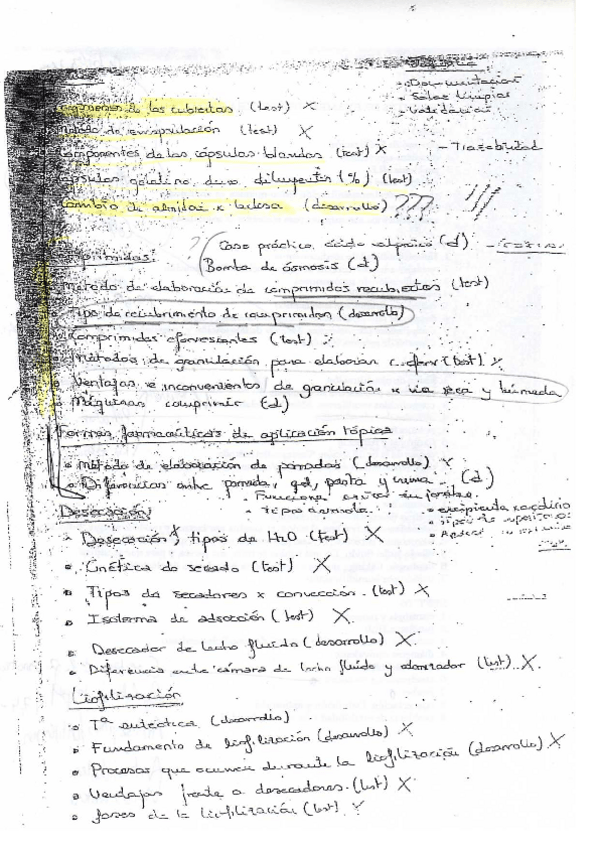 Documentación
Salas limpias
Validación
de las cubiertas (test) X
Método de encapsulación (test) X
Componentes de las cápsulas blandas (test) X - Trazabilidad
Cápsulas gelatina dura diluyentes (%) (test)
Cambio de almidón x lactosa (desarrollo) ??? ///
? Caso práctico ácido valproico (d)
Bomba de ósmosis (d)
Comprimidos:
Método de elaboración de comprimidos recubiertos (test)
Tipo de recubrimiento de comprimidos (desarrollo)
Comprimidos efervescentes (test)
Métodos de granulación para elaborar c. eferv (test). X
Ventajas e inconvenientes de granulación x vía seca y húmeda
Máquinas comprimir (d)
Formas farmacéuticas de aplicación tópica
Método de elaboración de pomadas (desarrollo) X
Diferencias entre pomada, gel, pasta y crema (d)
Desecación
Desecación, tipos de H2O (test) X
Cinética de secado (test) X
Tipos de secadores x convección. (test) X
Isoterma de adsorción (test) X
Desecador de lecho fluido (desarrollo) X
Diferencia entre cámara de lecho fluido y atomizador (test). X.
Liofilización
Tª eutéctica (desarrollo)
Fundamento de liofilización (desarrollo) X
Procesos que ocurren durante la liofilización (desarrollo) X
Ventajas frente a desecadores. (test) X
Fases de la liofilización (test) X